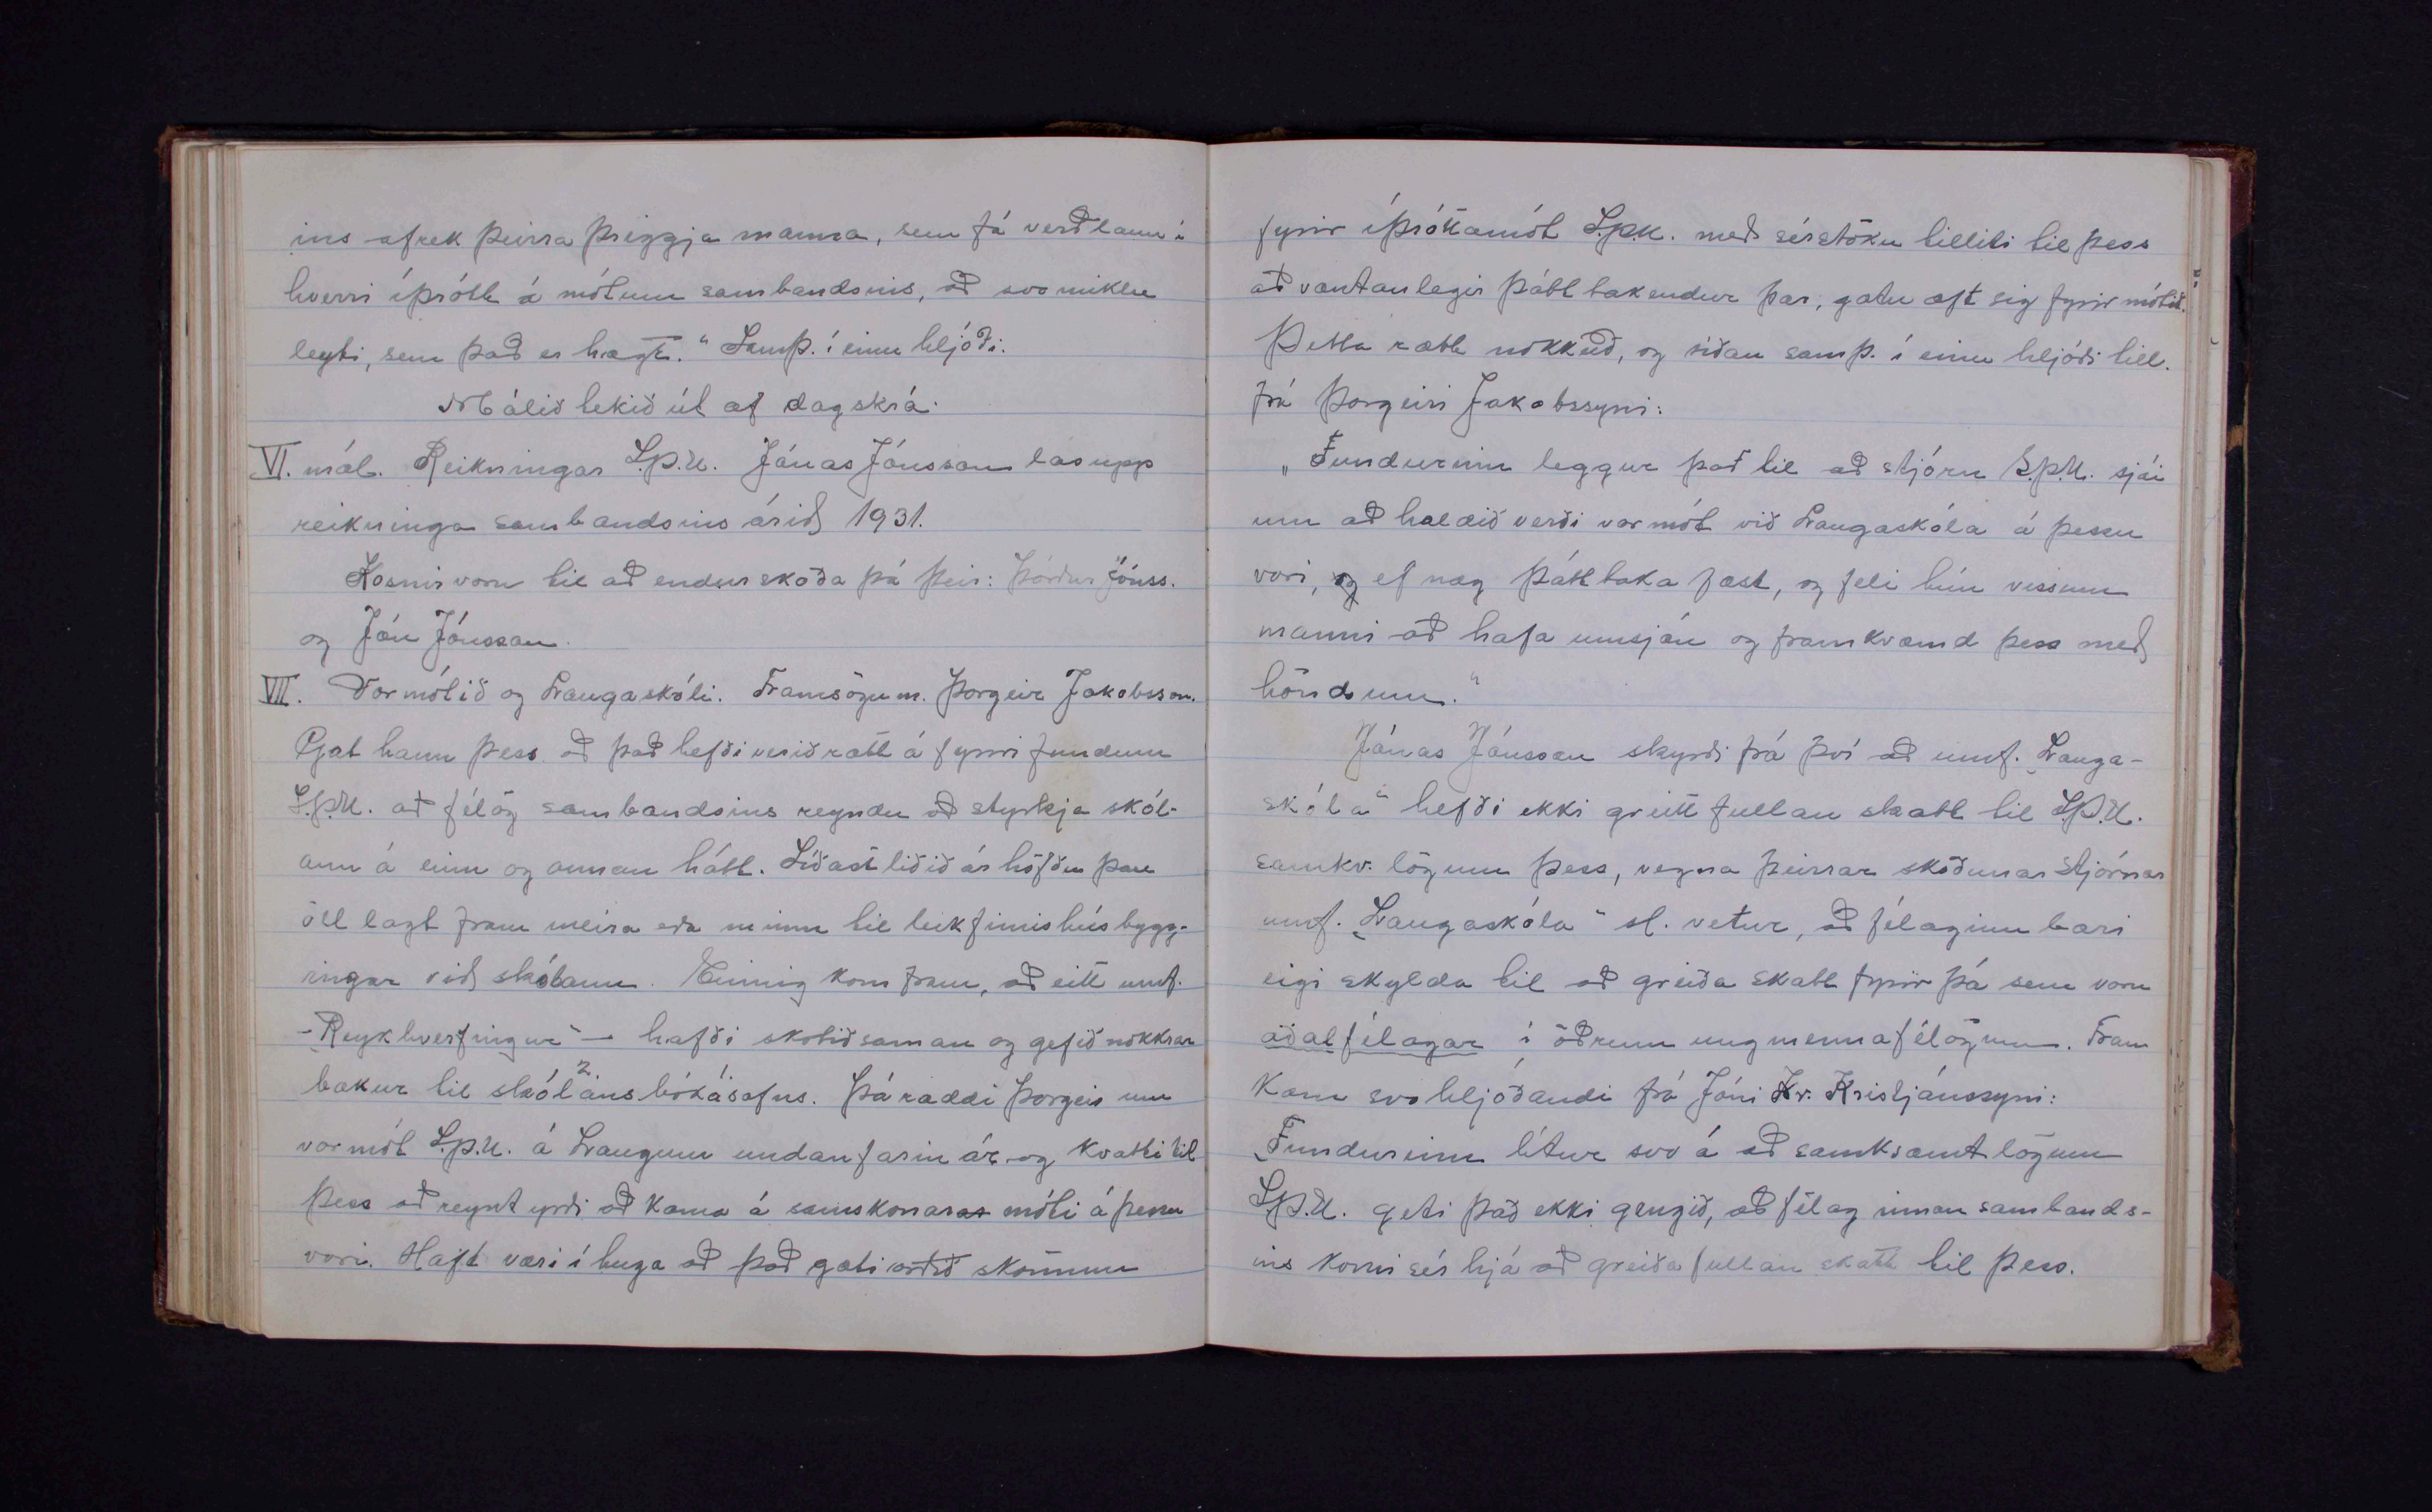 ins afrek þeirra þriggja manna, sem fá verðlaun í
hverri íþrótt á mótum sambandsins, að svo miklu
leyti, sem það er hægt." Samþ. í einu hljóði.
Málið tekið út af dagskrá.
VI. mál. Reikningar S.þ.U. Jónas Jónsson las upp
reikninga sambandsins árið 1931.
Kosnir voru til að endurskoða þá þeir: Þórður Jónss.
og Jón Jónsson.
VII. Vormótið og Laugaskóli. Framsögum. Þorgeir Jakobsson.
Gat hann þess að það hefði verið rætt á fyrri fundum
S.þ.U. að félög sambandsins reyndu að styrkja skól-
ann á einn og annan hátt. Síðastliðið ár höfðu þau
öll lagt fram meira eða minna til leikfimishúsbygg-
ingar við skólann. Einnig kom fram, að eitt umf.
- "Reykhverfingur" - hafði skotið saman og gefið nokkrar
bækur til skólans 2. bókasafns 1. Þá ræddi Þorgeir um
vormót S.þ.U. á Laugum undanfarin ár og hvatti til
þess að reynt yrði að koma á samskonar móti á þessu
vori. Haft væri í huga að það gæti orðið skömmu
fyrir íþróttamót S.þ.U. með sérstöku tilliti til þess
að væntanlegir þátttakendur þar, gætu æft sig fyrir mótið.
Þetta rætt nokkuð, og síðan samþ. í einu hljóði till.
frá Þorgeiri Jakobssyni:
„Fundurinn leggur það til að stjórn S.þ.U. sjái
um að haldið verði vormót við Laugaskóla á þessu
vori, ef næg þátttaka fæst, og feli hún vissum
manni að hafa umsjón og framkvæmd þess með
höndum."
Jónas Jónsson skyrði frá því að umf. „Lauga-
skóla" hefði ekki greitt fullan skatt til S.Þ.U.
samkv. lögum þess, vegna þeirrar skoðunar stjórnar
umf. „Laugaskóla" sl. vetur, að félaginu bæri
eigi skylda til að greiða skatt fyrir þá sem voru
aðalfélagar í öðrum ungmennafélögum. Fram
kom svohljóðandi frá Jóni Kr. Kristjánssyni:
„Fundurinn lítur svo á að samkvæmt lögum
S.Þ.U. geti það ekki gengið, að félag innan sambands-
ins komi sér hjá að greiða fullan skatt til þess.